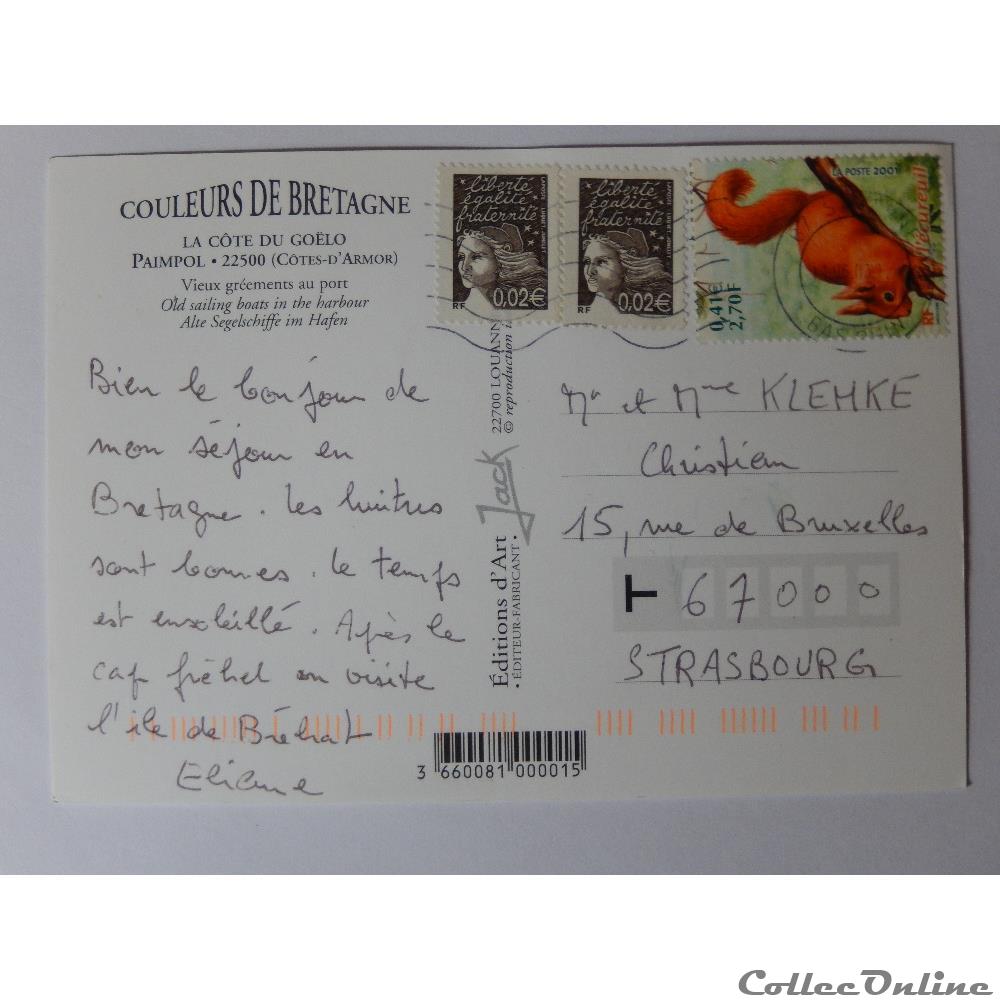 COULEURS DE BRETAGNE
LA CÔTE DU GOËLO
PAIMPOL • 22500 (CÔTES-D'ARMOR)
Vieux gréements au port
Old sailing boats in the harbour
Alte Segelschiffe im Hafen
Bien le bonjour de
mon séjour en
Bretagne. Les huitres
sont bonnes. Le temps
est ensoleillé. Après le
cap fréhel on visite
l'ile de Bréhat
Eliane
liberté
égalité
fraternité
RF
0,02€
liberté
égalité
fraternité
RF
0,02€
LA POSTE 2001
l'écureuil
0,41€
2,70F
RF
22700 LOUANN
© reproduction i
Jack
Éditions d'Art
• ÉDITEUR-FABRICANT •
Mr et Mme KLEMKE
Christian
15, rue de Bruxelles
T 67000
STRASBOURG
3 660081 000015
CollecOnline